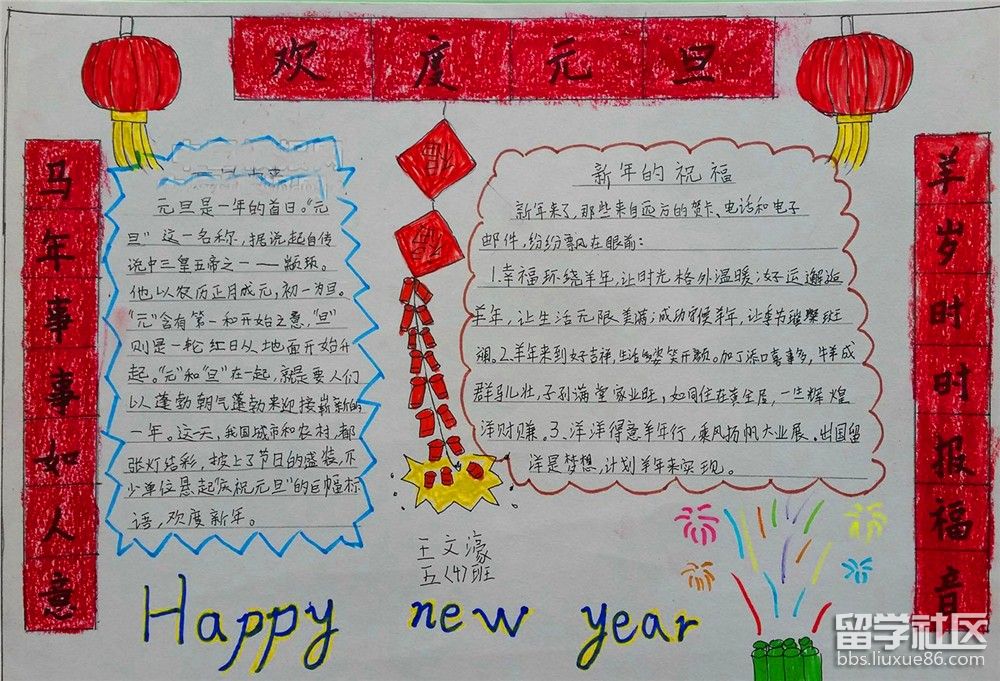 欢度元旦
马年事事如人意
元旦是一年的首日。“元
旦”这一名称，据说起自传
说中三皇五帝之一——颛顼。
他以农历正月成元，初一为旦。
“元”含有第一和开始之意，“旦”
则是一轮红日从地面开始升
起。“元”和“旦”在一起，就是要人们
以蓬勃朝气蓬勃来迎接崭新的
一年。这一天，我国城市和农村，都
张灯结彩，披上了节日的盛装，不
少单位悬起“庆祝元旦”的巨幅标
语，欢度新年。
福
福
新年的祝福
新年来了，那些来自远方的贺卡、电话和电子
邮件，纷纷飘在眼前：
1.幸福环绕羊年，让时光格外温暖；好运邂逅
羊年，让生活无限美满；成功守候羊年，让季节璀璨斑
斓。2.羊年来到好吉祥，生活多姿笑开颜。加丁添口喜事多，牛羊成
群马儿壮，子孙满堂家业旺，如同住在黄金屋，一生辉煌
洋财赚。3.洋洋得意羊年行，乘风扬帆大业展。出国留
洋是梦想，计划羊年来实现。
羊岁时时报福音
王文濠
五〈4〉班
Happy new year
留学社区
bbs.liuxue86.com